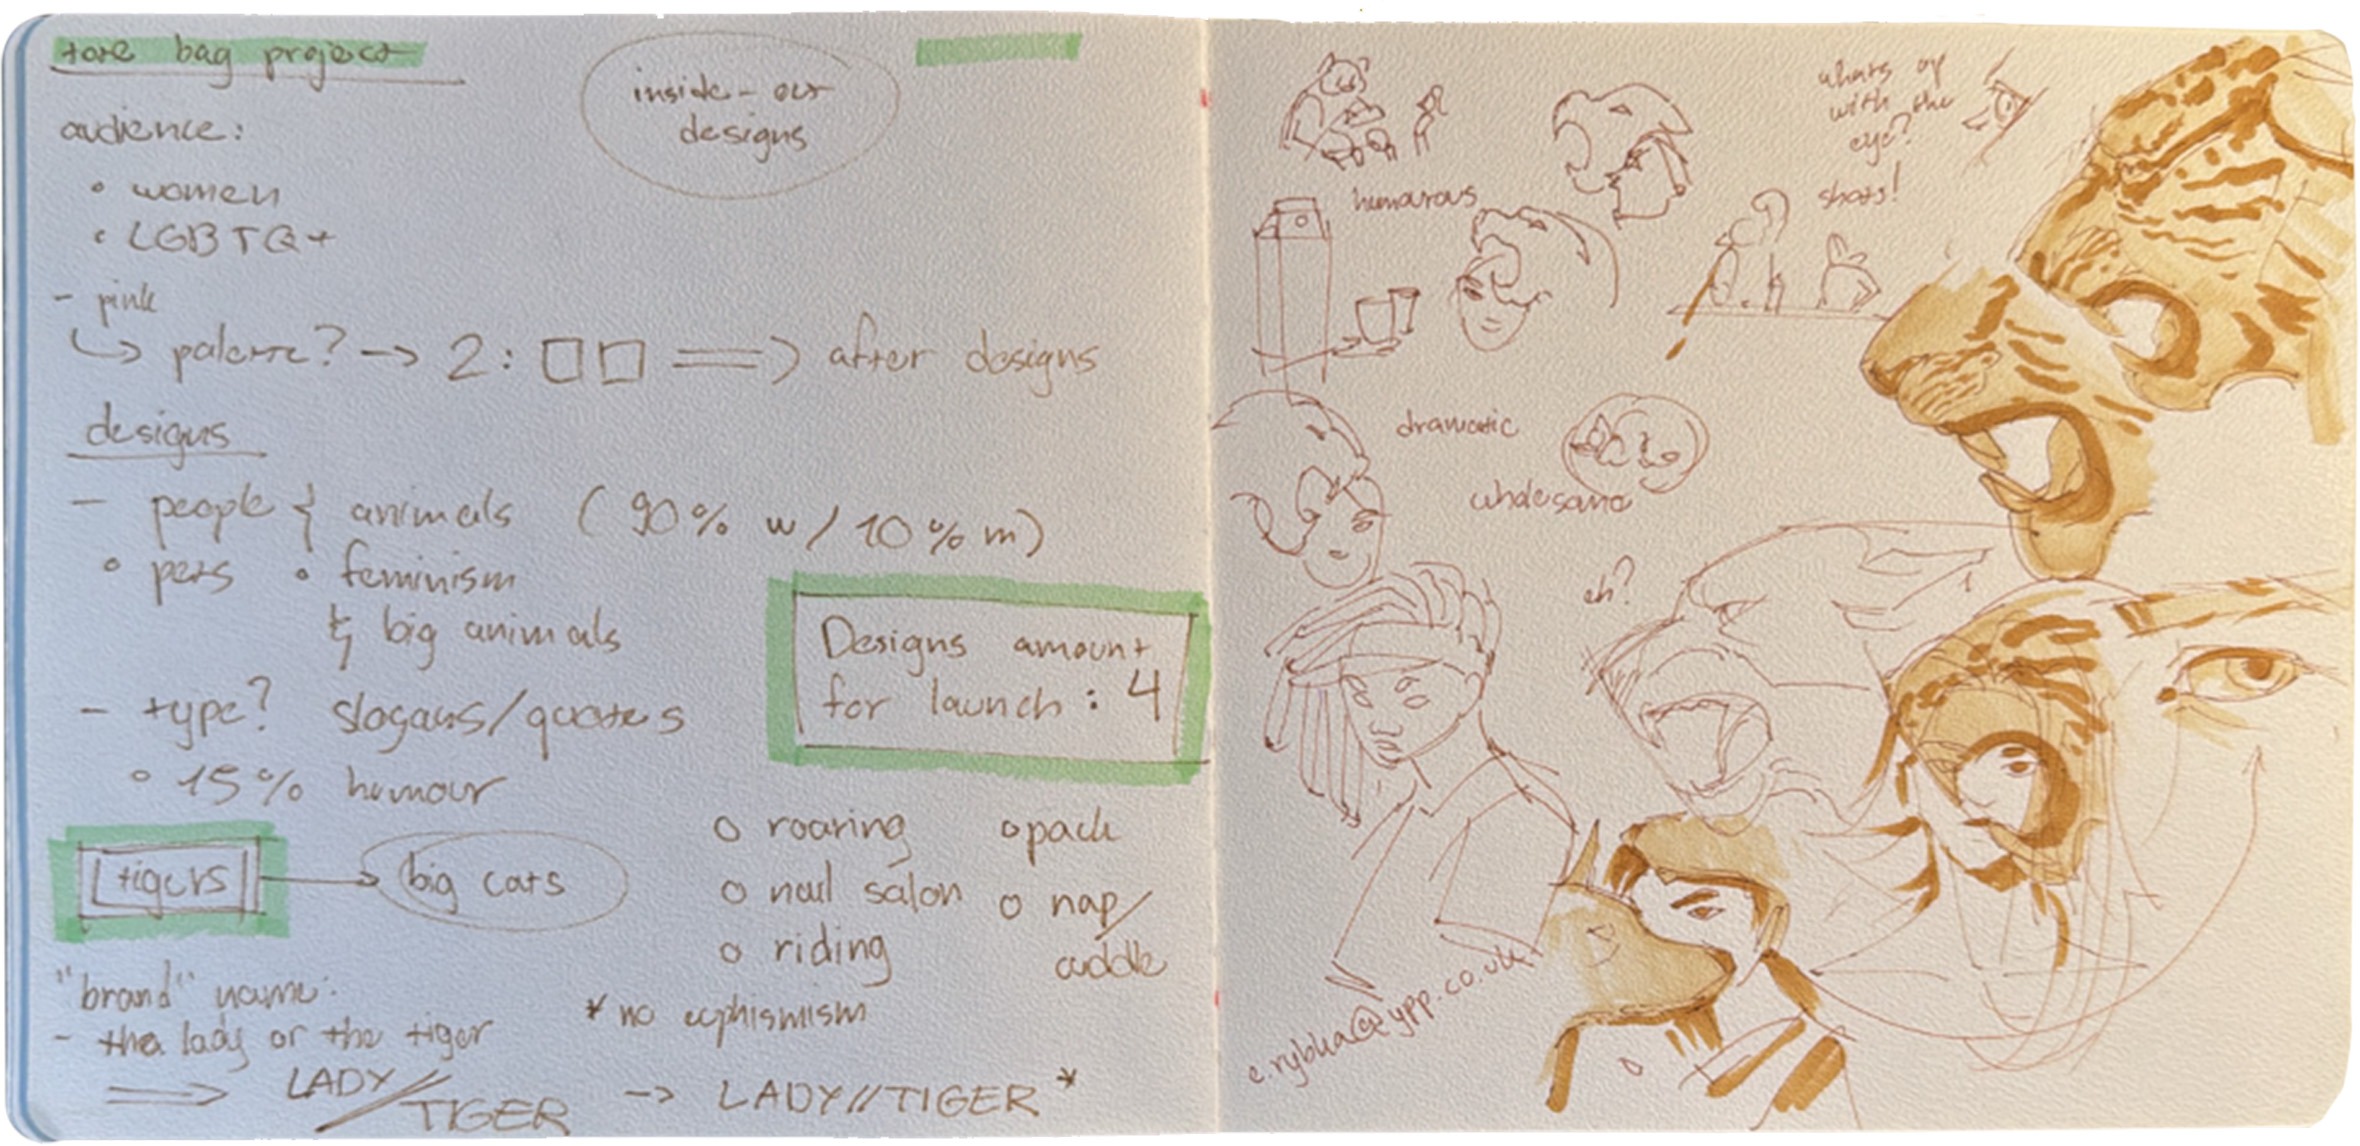 tote bag project
inside-out
designs
audience:
• women
• LGBTQ+
- pink
↳ palette? → 2: □□ ⟹ after designs
designs
- people & animals (90% w / 10% m)
• pets • feminism
& big animals
Designs amount
for launch: 4
- type? slogans/quotes
• 15% humour
tigers → big cats
○ roaring ○ pack
○ nail salon ○ nap/
cuddle
○ riding
"brand" name:
- the lady or the tiger
* no euphismism
⟹ LADY//TIGER → LADY//TIGER*
whats up
with the
eye?
humorous
shots!
dramatic
wholesome
eh?
e.rybka@ypp.co.uk